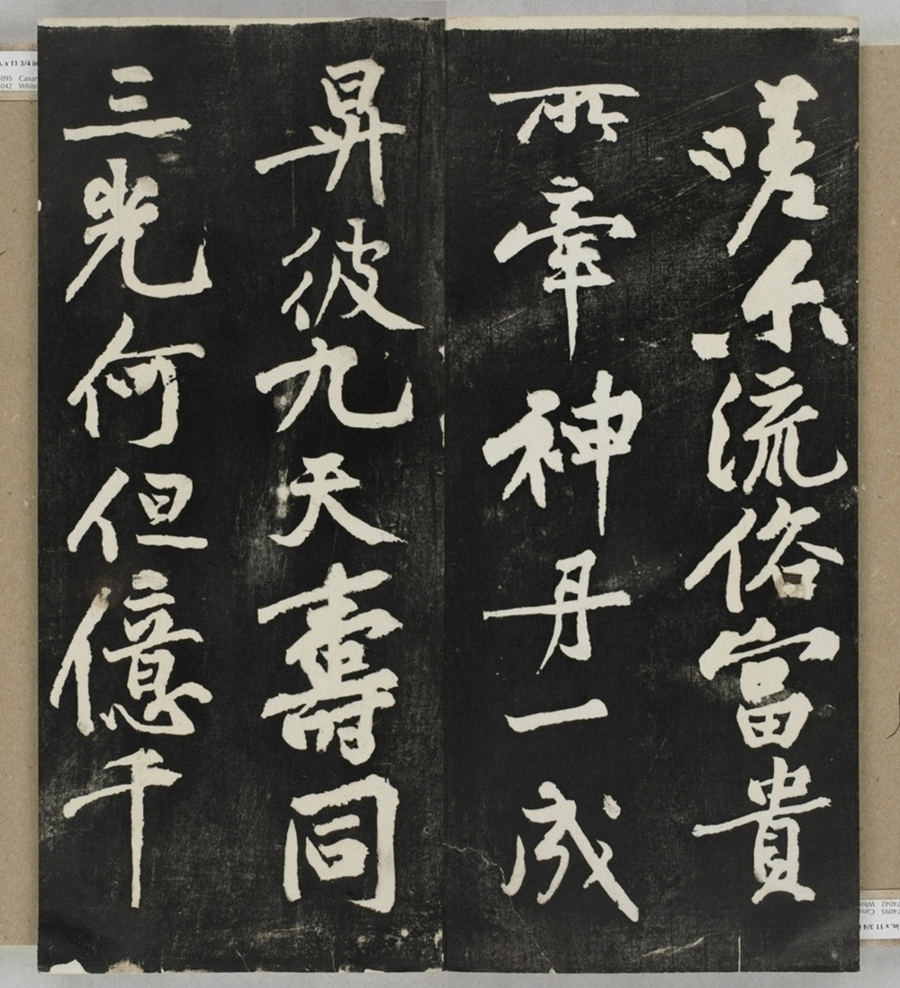 嗟尔流俗富貴
所牽神丹一成
昇彼九天壽同
三光何但億千